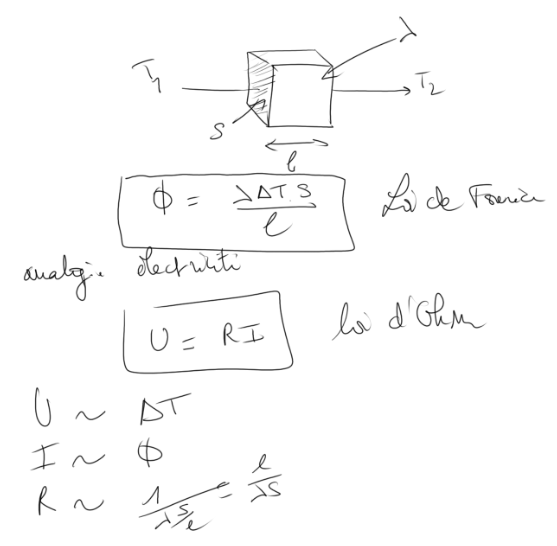 T₁ λ T₂
S
l
Φ = λΔT.S / l Loi de Fourier
analogie électricité
U = RI loi d'Ohm
U ~ ΔT
I ~ Φ
R ~ 1 / λS/e = e / λS